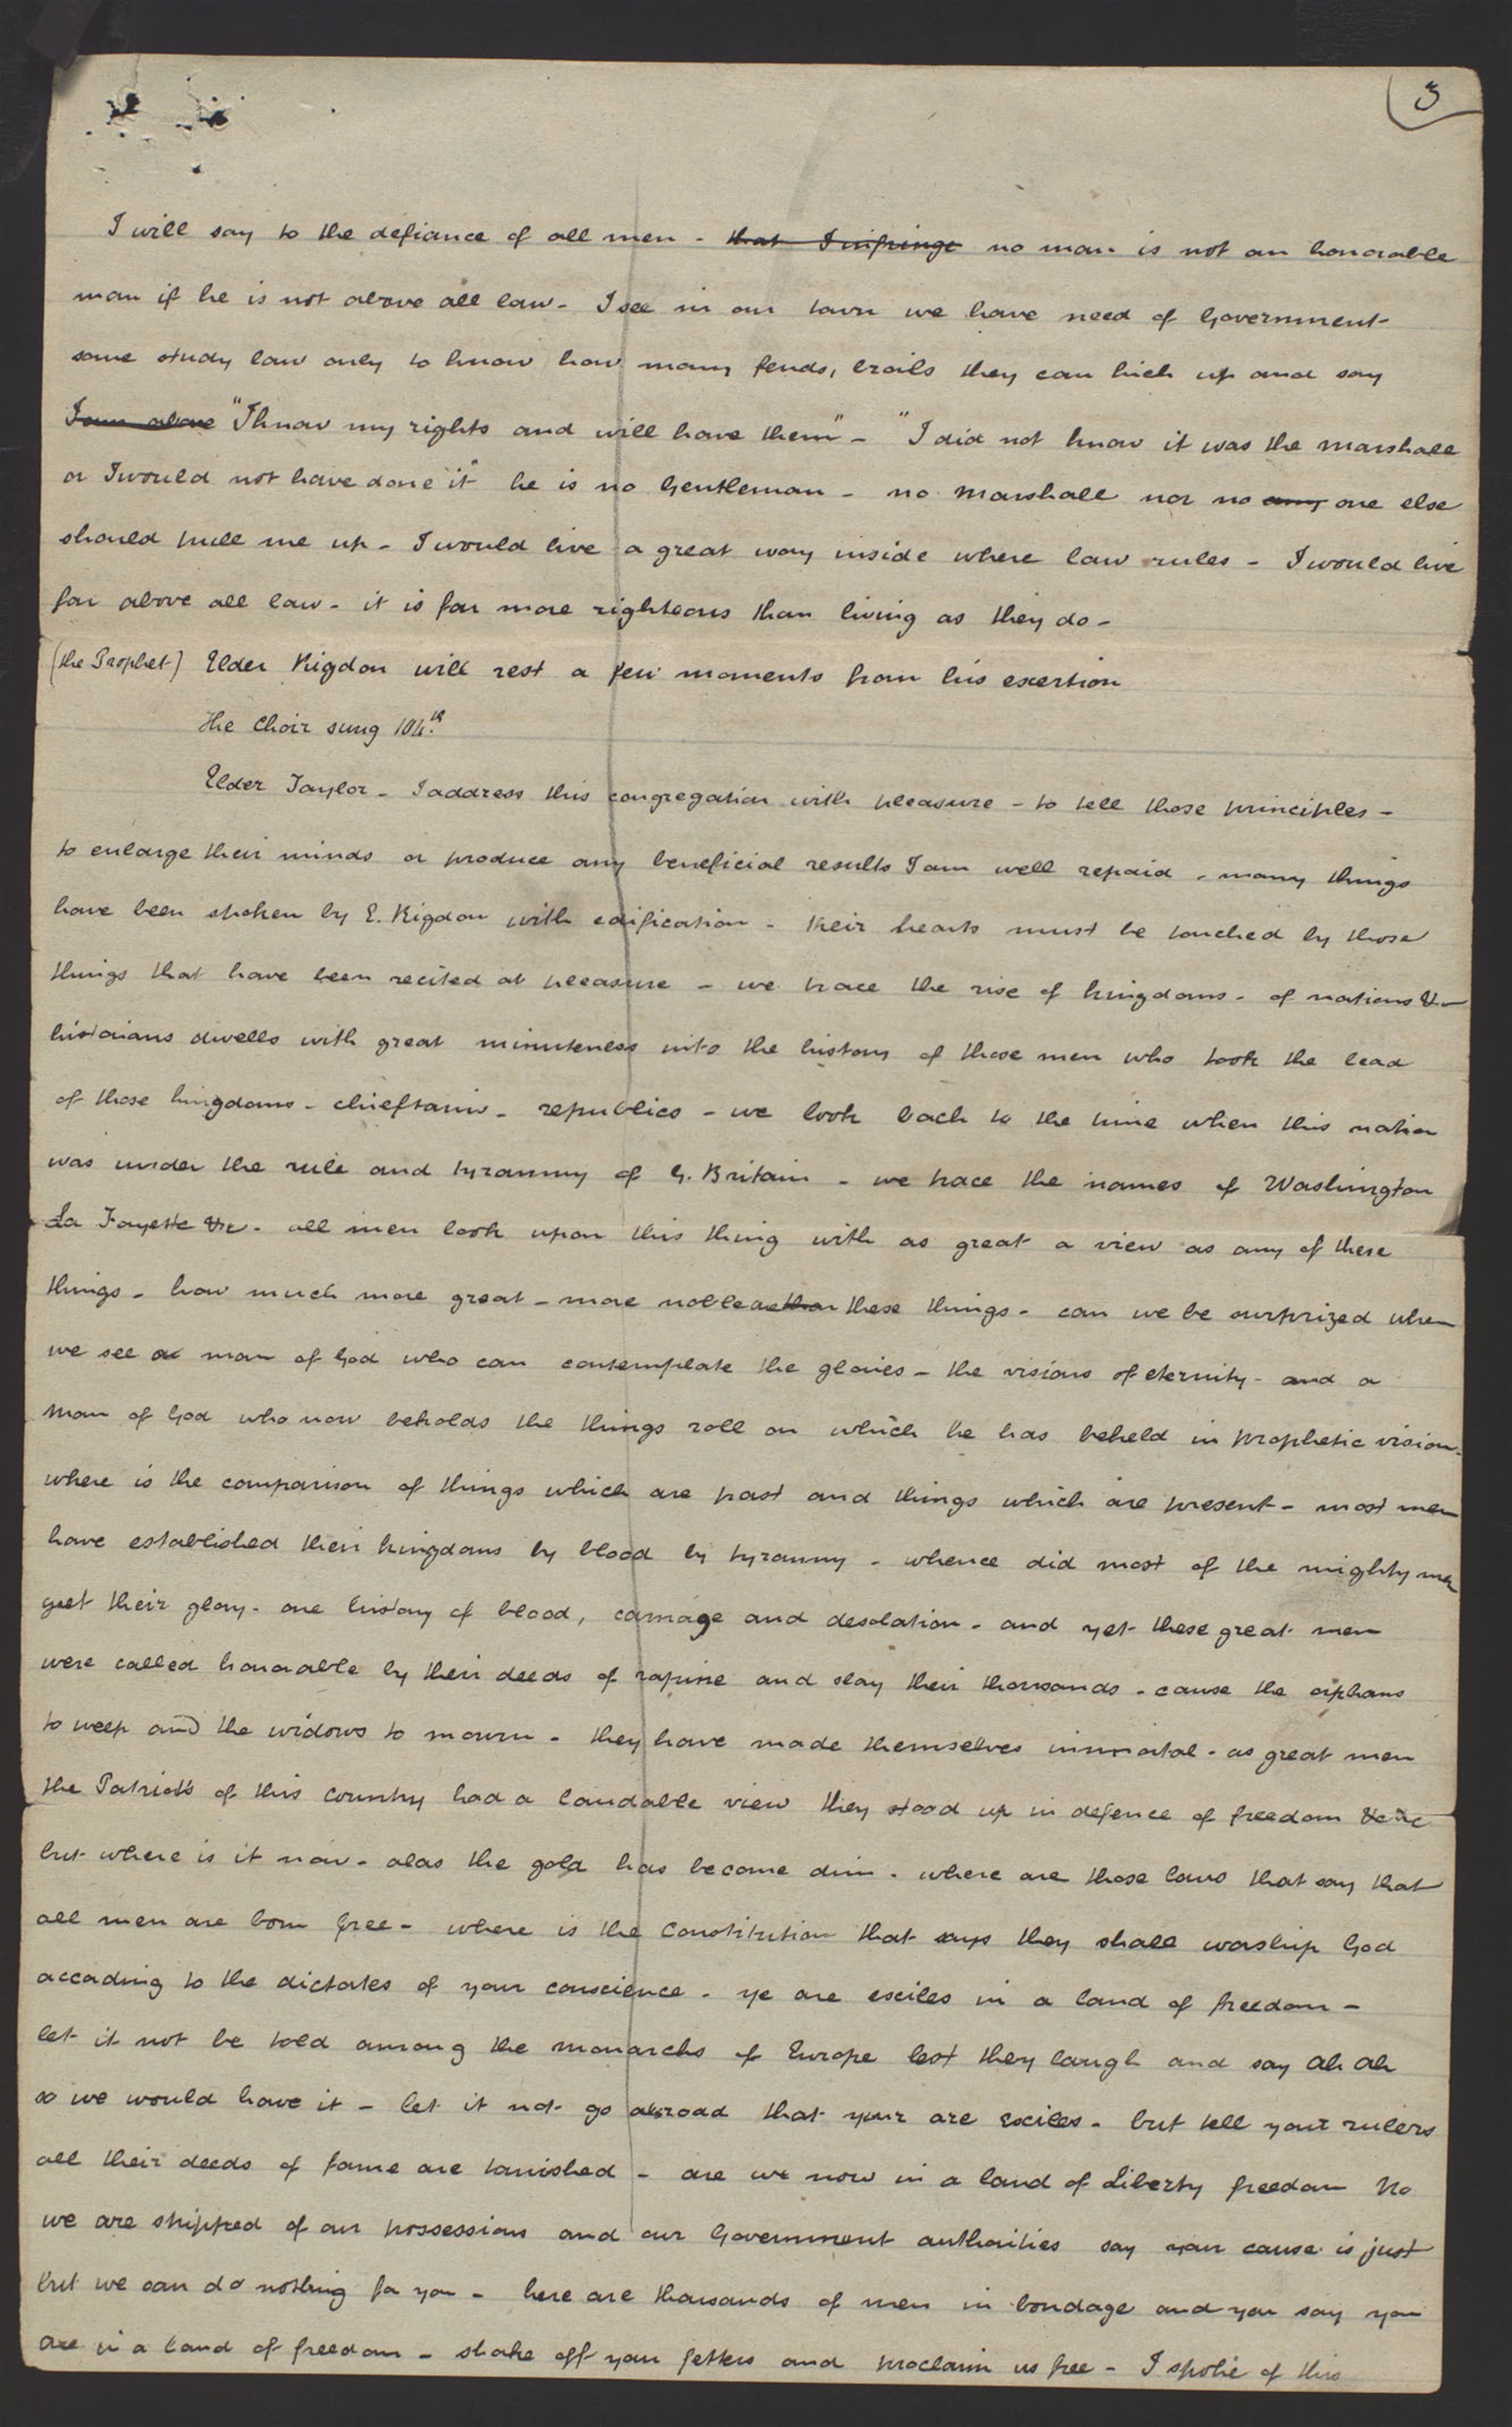 3
I will say to the defiance of all men - that I infringe no man is not an honorable
man if he is not above all law - I see in our town we have need of Government
some study law only to know how many feuds, broils they can kick up and say
I am above "I know my rights and will have them" - "I did not know it was the marshall
or I would not have done it" he is no Gentleman - no marshall nor no any one else
should pull me up - I would live a great way inside where law rules - I would live
far above all law - it is far more righteous than living as they do -
(the Prophet) Elder Rigdon will rest a few moments from his exertion
The Choir sung 104th.
Elder Taylor - I address this congregation with pleasure - to tell those principles -
to enlarge their minds or produce any beneficial results I am well repaid - many things
have been spoken by E. Rigdon with edification - their hearts must be touched by those
things that have been recited at pleasure - we trace the rise of kingdoms - of nations &
historians dwells with great minuteness into the history of those men who took the lead
of those kingdoms - chieftains - republics - we look back to the time when this nation
was under the rule and tyranny of G. Britain - we trace the names of Washington
La Fayette &c - all men look upon this thing with as great a view as any of these
things - how much more great - more noble are than these things - can we be surprized when
we see a man of God who can contemplate the glories - the visions of eternity - and a
man of God who now beholds the things roll on which he has beheld in prophetic vision -
where is the comparison of things which are past and things which are present - most men
have established their kingdoms by blood by tyranny - whence did most of the mighty men
get their glory - one history of blood, carnage and desolation - and yet these great men
were called honorable by their deeds of rapine and slay their thousands - cause the orphans
to weep and the widows to mourn - they have made themselves immortal - as great men
the Patriots of this country had a laudable view they stood up in defence of freedom &c &c
but where is it now - alas the gold has become dim - where are those laws that say that
all men are born free - where is the Constitution that says they shall worship God
according to the dictates of your conscience - ye are exiles in a land of freedom -
let it not be told among the monarchs of Europe lest they laugh and say ah ah
so we would have it - let it not go abroad that your are exiles - but tell your rulers
all their deeds of fame are tarnished - are we now in a land of Liberty freedom No
we are stripped of our possessions and our Government authorities say your cause is just
but we can do nothing for you - here are thousands of men in bondage and you say you
are in a land of freedom - shake off your fetters and proclaim us free - I spoke of this